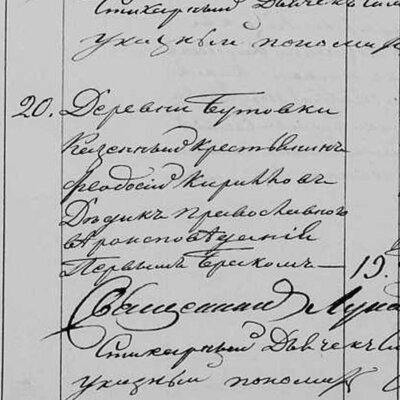 Стихарный Дьячекъ
указный пономарь
20. Деревни Бутовки
Казенный крестьянинъ
Феодосій Кирилловъ
Дьдикъ Православнаго
вѣроисповѣданія
Первымъ бракомъ — 19.
Священникъ Лука
Стихарный Дьячекъ
указный пономарь